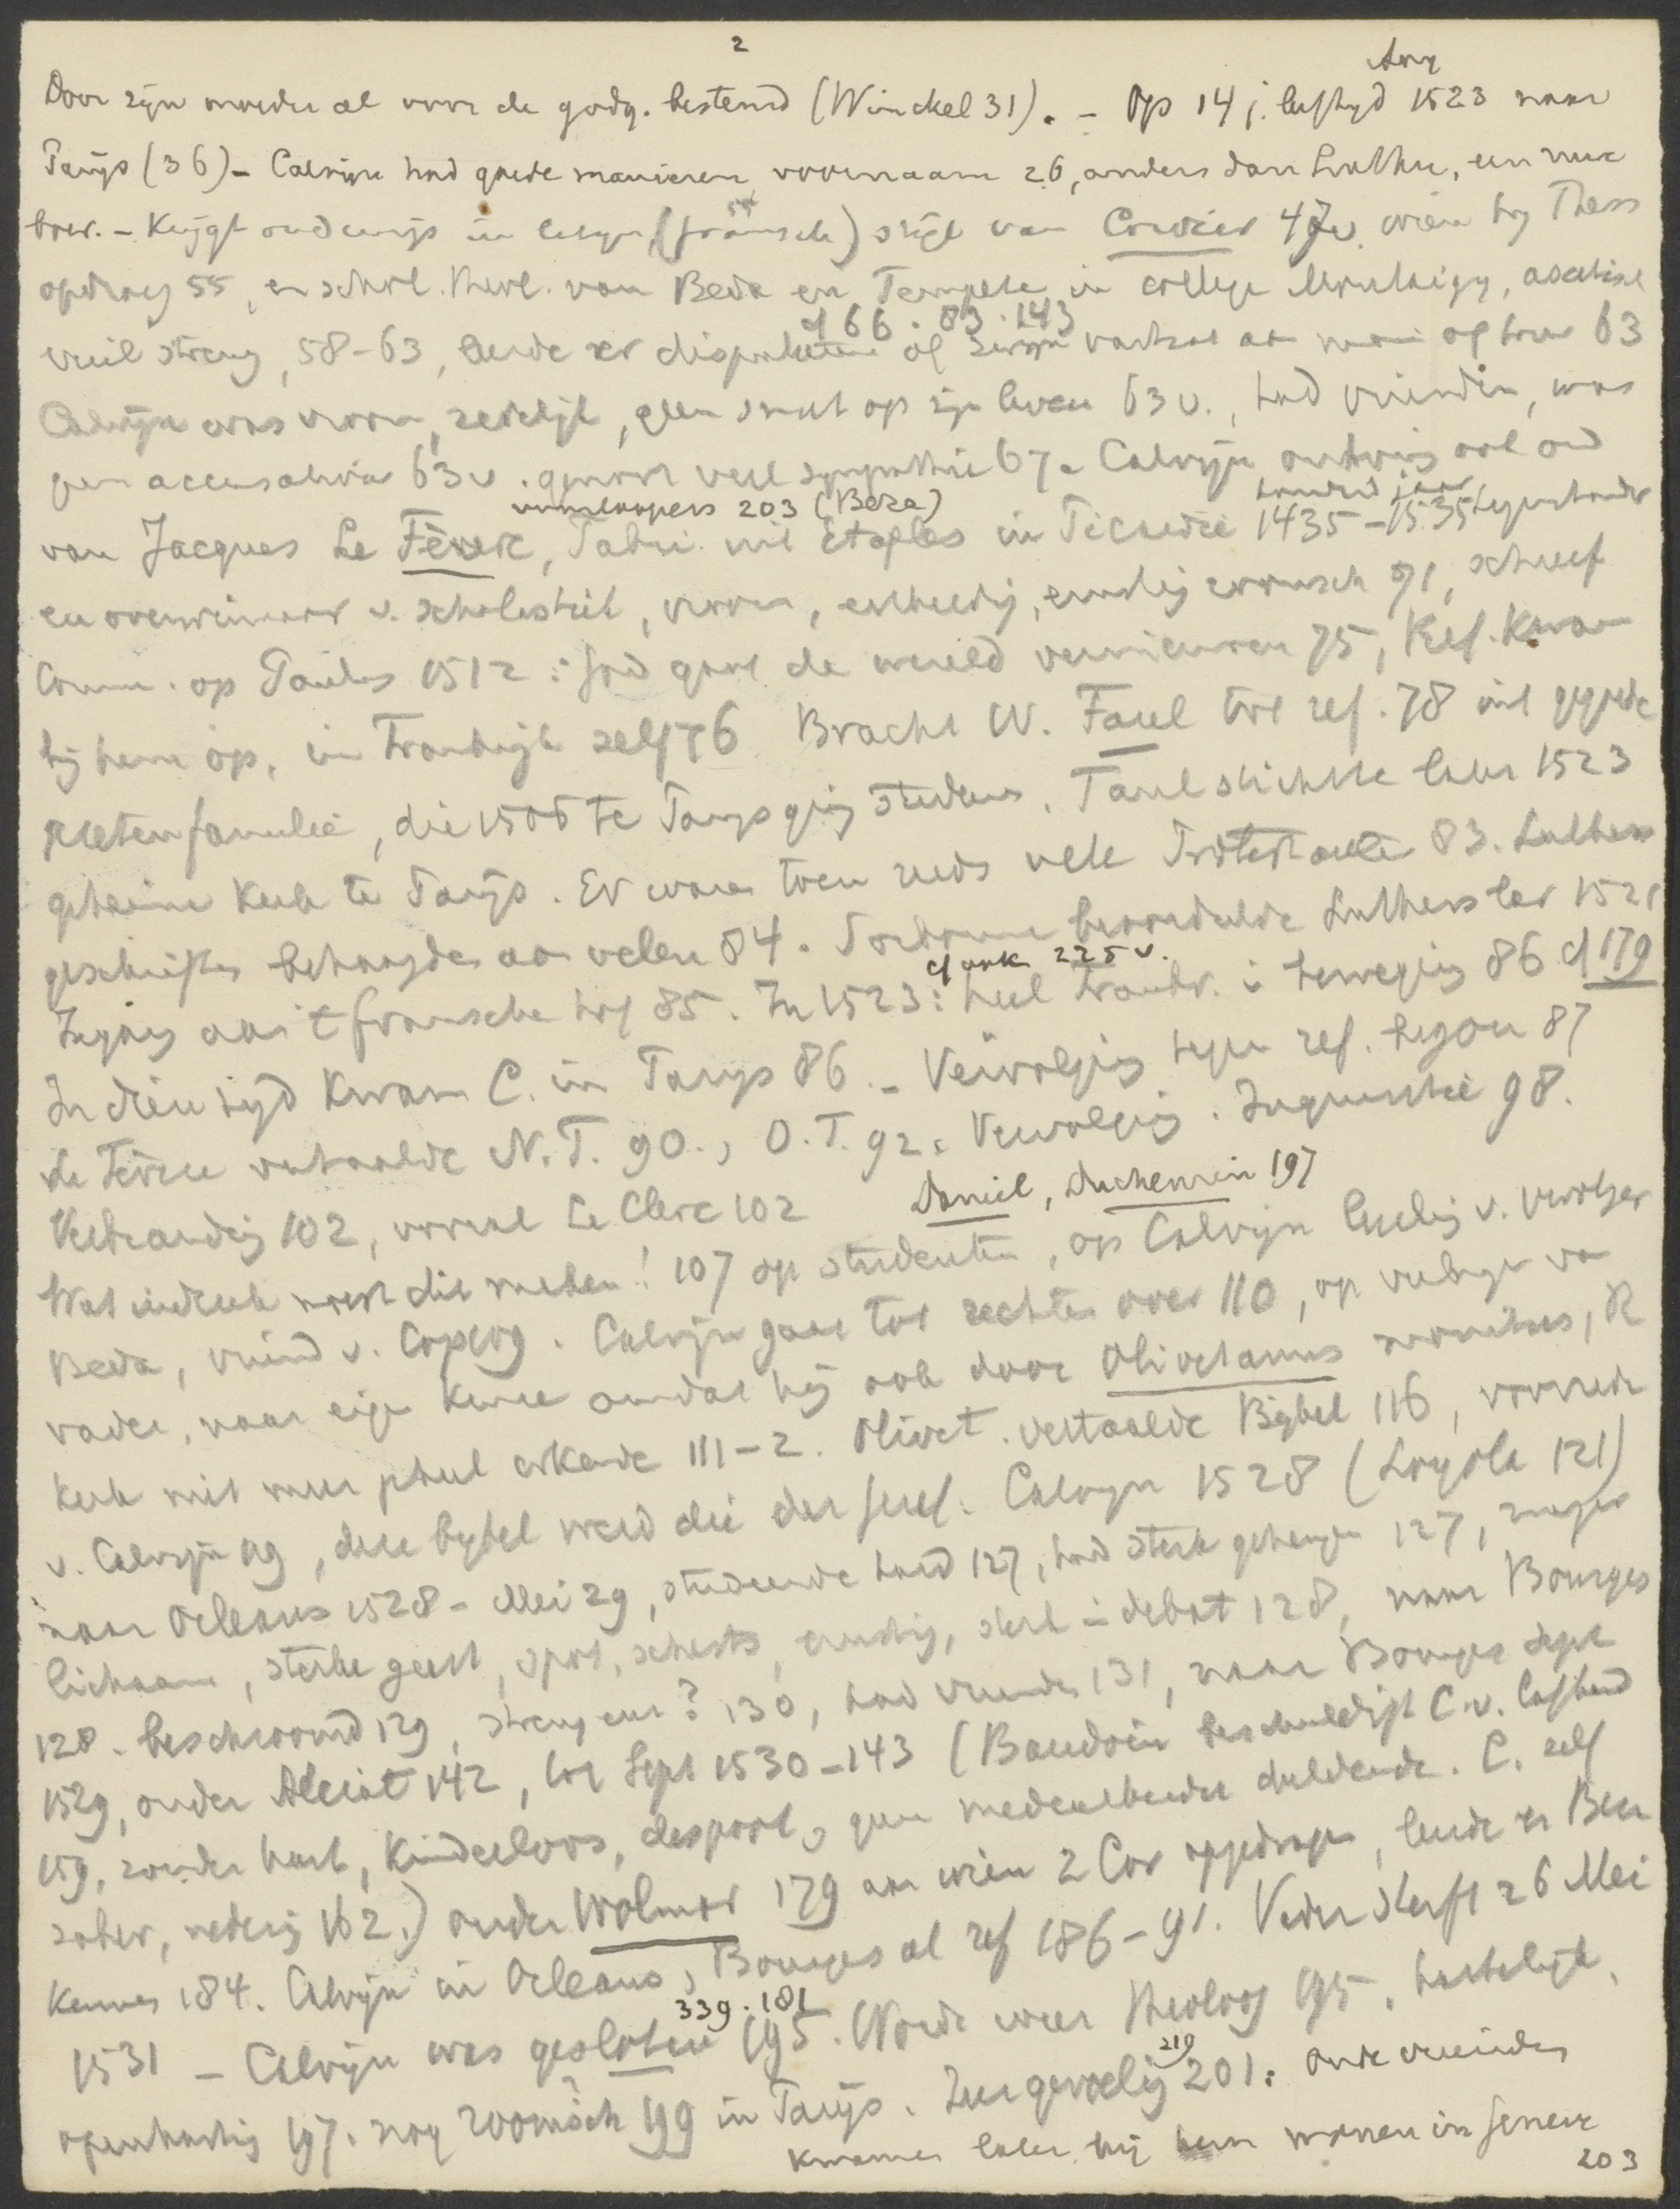 2
Aug
Door zijn moeder al voor de godg. bestemd (Winckel 31). - Op 14 j. leeftyd 1523 naar
Parijs (36) - Calvijn had goede manieren, voornaam 26, anders dan Luther, een ruw
boer. - Krijgt onderwijs in latijn (fransche) stijl van Cordier 47v. wien hij Thess
opdroeg 55, en schol. theol. van Beda en Tempete in college Montaigu, ascetisch
cf 66 . 83 . 143
veel streng, 58-63, leerde er disputeeren of 63
Calvijn was vroom, zedelijk, geen smet op zijn leven 63v., had vrienden, was
geen accusativus 63v. genoot veel sympathie 67. Calvijn ontving ook ond
voorloopers 203 (Beza) honderd jaar
van Jacques Le Fèvre, Fabri uit Etaples in Picardie 1435-1535 tegenstander
en overwinnaar v. scholastiek, vroom, eerbiedig, ernstig roomsch 71, schreef
Comm. op Paulus 1512: God gaat de wereld vernieuwen 75, Ref. kwam
bij hem op, in Frankrijk zelf 76 Bracht W. Farel tot ref. 78 uit gegoede
familie, die 1506 te Parijs ging studeeren. Farel stichtte later 1523
geheime kerk te Parijs. Er waren toen reeds vele Protestanten 83. Luthers
geschriften behaagden aan velen 84. Sorbonne beoordeelde Luthers leer 1521
cf ook 225 v.
Ingang aan 't fransche hof 85. In 1523: heel Frankr. in beweging 86 cf 179
In dien tijd kwam C. in Parijs 86. - Vervolging tegen ref. begon 87
Le Fèvre vertaalde N.T. 90., O.T. 92. Vervolging. Inquisitie 98.
Verbranding 102, vooral Le Clerc 102 Daniel, Duchemin 197
Wat indruk moest dit maken! 107 op studenten, op Calvijn leerling v.
Beda, vriend v. Cop 109. Calvijn gaat tot rechten over 110, op verlangen van
vader, naar eigen keuze omdat hij ook door Olivetanus R
kerk niet meer erkende 111-2. Olivet. vertaalde Bijbel 116, voorrede
v. Calvijn 119, deze bijbel werd die der Geref. Calvijn 1528 (Loyola 121)
naar Orleans 1528 - Mei 29, studeerde hard 127, had sterk geheugen 127, mager
lichaam, sterke geest, spot, scherts, ernstig, sterk in debat 128, naar Bourges
128. beschroomd 129, streng een? 130, had vrienden 131, naar Bourges Sept
1529, onder Alciat 142, tot Sept 1530 - 143 (Baudoin beschuldigt C. v. lafheid
159, zonder hart, kinderloos, despoot, geen medearbeider duldende. C. zelf
sober, nederig 162.) onder Wolmar 179 aan wien 2 Cor opgedragen, leerde er Beza
kennen 184. Calvijn in Orleans, Bourges al ref 186-91. Vader sterft 26 Mei
339 . 181
1531 - Calvijn was gesloten 195. Wordt weer theoloog 195, hartelijk,
219
openhartig 197. nog roomsch 199 in Parijs. Zeer gevoelig 201: oude vrienden
kwamen later bij hem wonen in Geneve
203